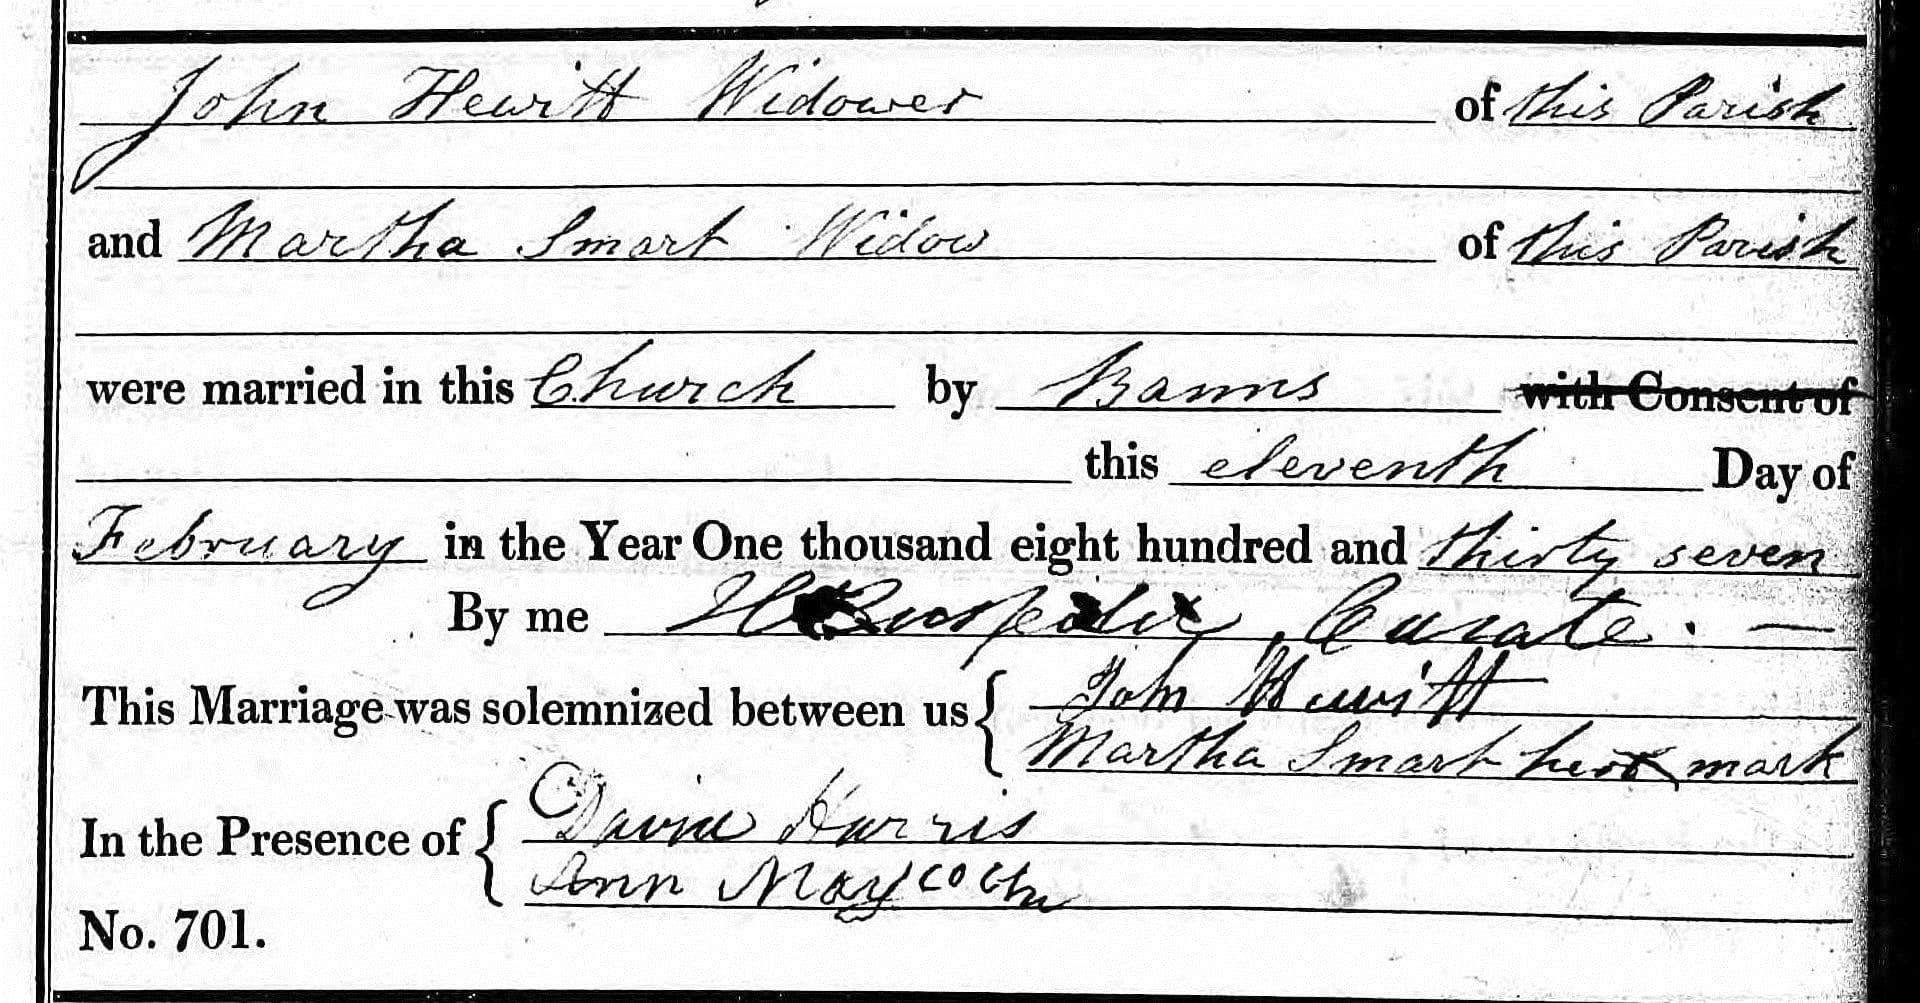 John Hewitt Widower of this Parish
and Martha Smart Widow of this Parish
were married in this Church by Banns with Consent of
this eleventh Day of
February in the Year One thousand eight hundred and thirty seven
By me Curate. —
This Marriage was solemnized between us { John Hewitt
Martha Smart her X mark
In the Presence of { David Harris
Ann
No. 701.